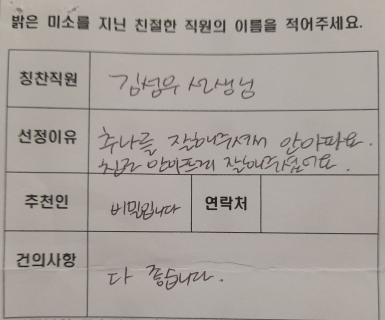 밝은 미소를 지닌 친절한 직원의 이름을 적어주세요.
칭찬직원 김성우 선생님
선정이유 추나를 잘해주셔서 안아파요.
침도 안아프게 잘해주셨어요.
추천인 비밀입니다 연락처
건의사항 다 좋습니다.